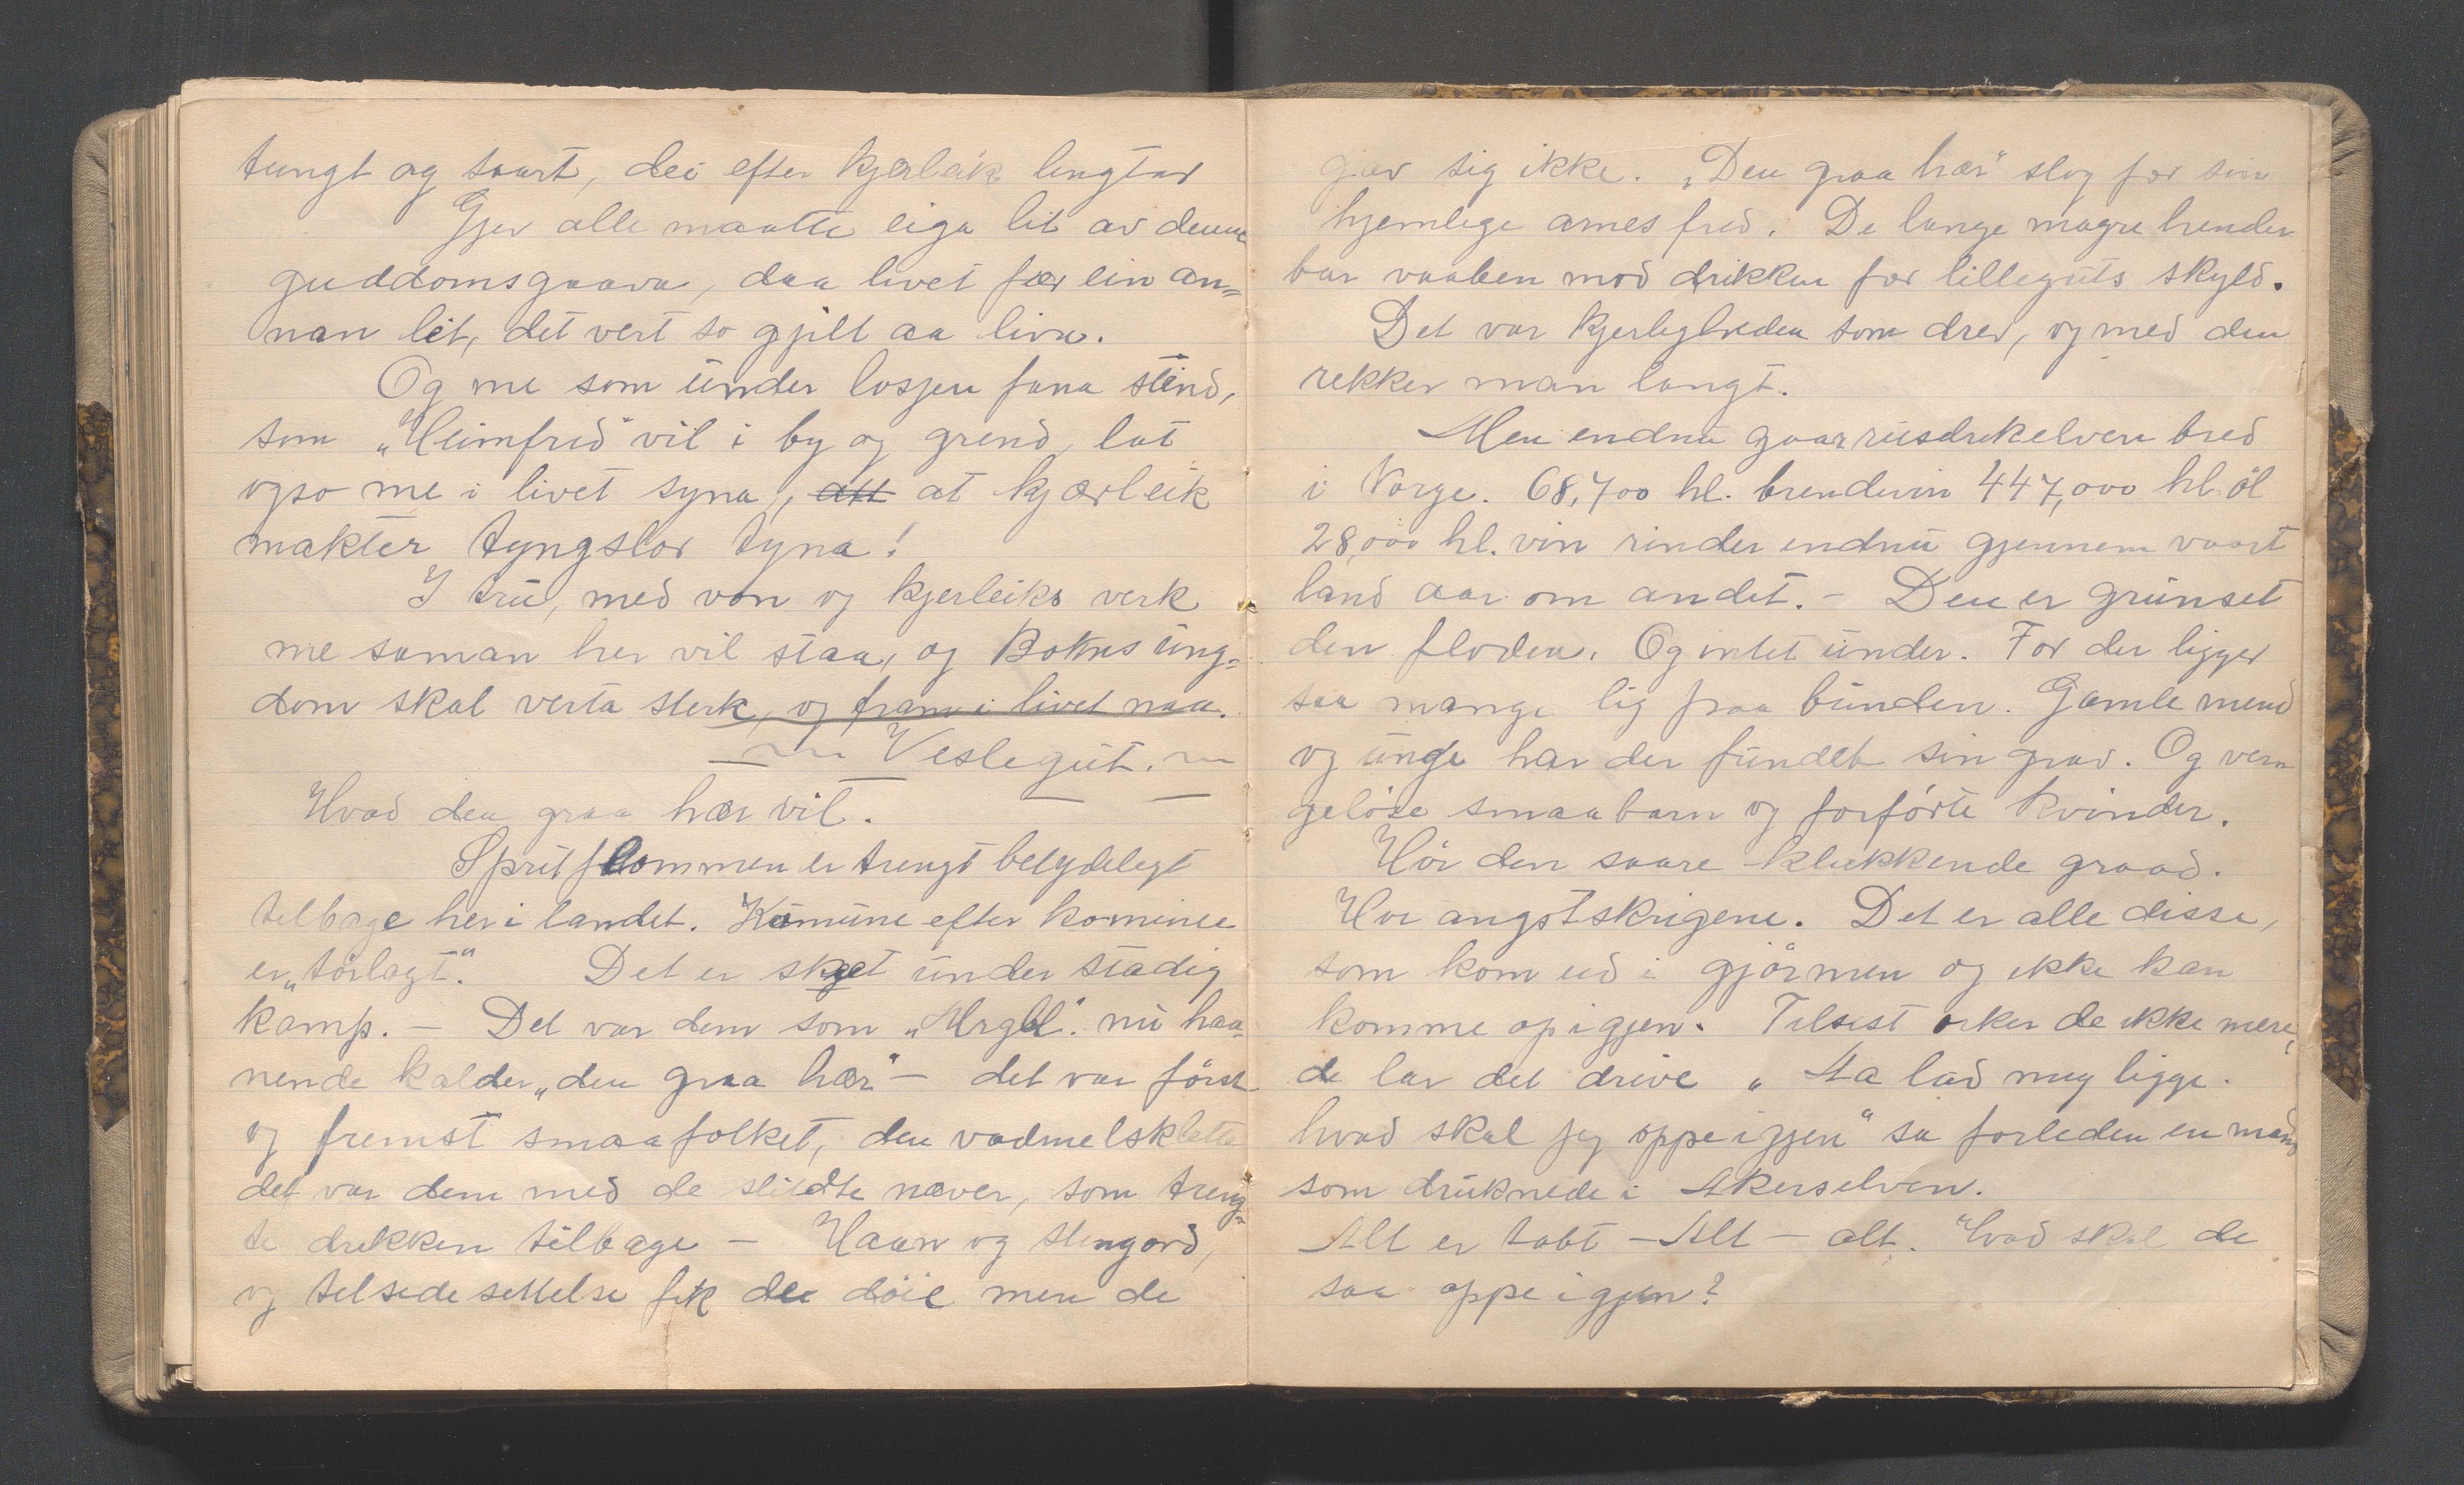 tungt og saart, dei efter kjerleik lengtar
Gjev alle maatte eiga lit av denne
guddomsgaava, daa livet fær ein an=
nan lit, det vert so gjilt aa liva.
Og me som under losjen fana stend,
som „Heimfred" vil i by og grend, lat
ogso me i livet syna, att at kjærleik
makter tyngslor tyna!
I tru, med von og kjerleiks verk
me saman her vil staa, og Bokns ung=
dom skal verta sterk, og fram i livet naa.
Veslegut.
Hvad den graa hær vil.
Spritflommen er trengt betydelegt
tilbage her i landet. Komune efter komune
er „tørlagt". Det er skeet under stadig
kamp. – Det var dem som „Mrgbl". nu haa=
nende kalder „den graa hær" – det var først
og fremst smaafolket, den vadmelsklette
det var dem med de slidte næver, som treng=
te drikken tilbage – Haan og slengord,
og tilsidesettelse fik de døie men de
gav sig ikke. „Den graa hær" slog for sin
hjemlige arnes fred. De lange magre hender
bar vaaben mod drikken for lilleguts skyld.
Det var kjerligheden som drev, og med den
rekker man langt.
Men endnu gaar rusdrikelven bred
i Norge. 68,700 hl. brendevin 447,000 hl. øl
28,000 hl. vin rinder endnu gjennem vaart
land aar om andet. – Den er grumset
den floden. Og intet under. For der ligger
saa mange lig paa bunden. Gamle mend
og unge har der fundet sin grav. Og vern
geløse smaabarn og forførte kvinder.
Hør den saare klukkende graad.
Hør angstskrigene. Det er alle disse,
som kom ud i gjørmen og ikke kan
komme op igjen. Tilsist orker de ikke mere,
de lar det drive „Aa lad mig ligge.
hvad skal jeg oppe igjen" sa forleden en mand
som druknede i Akerselven.
Alt er tabt – Alt – alt. Hvad skal de
saa oppe igjen?